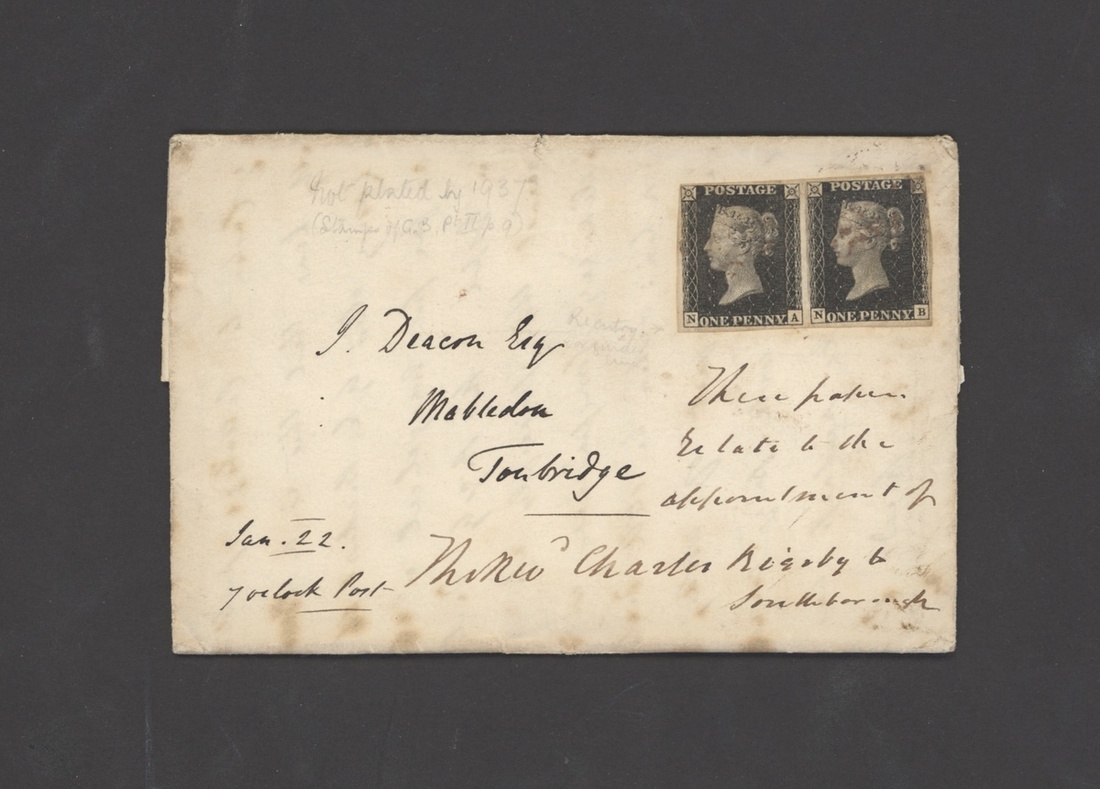 Not plated by 1937
(Stamps of G.B. Pt II p 9)
POSTAGE
N ONE PENNY A
POSTAGE
N ONE PENNY B
J. Deacon Esq
Mabledon
Tonbridge
Jan. 22.
7 oclock Post
These papers
relate to the
appointment of
The Revd Charles Rigsby to
Southborough